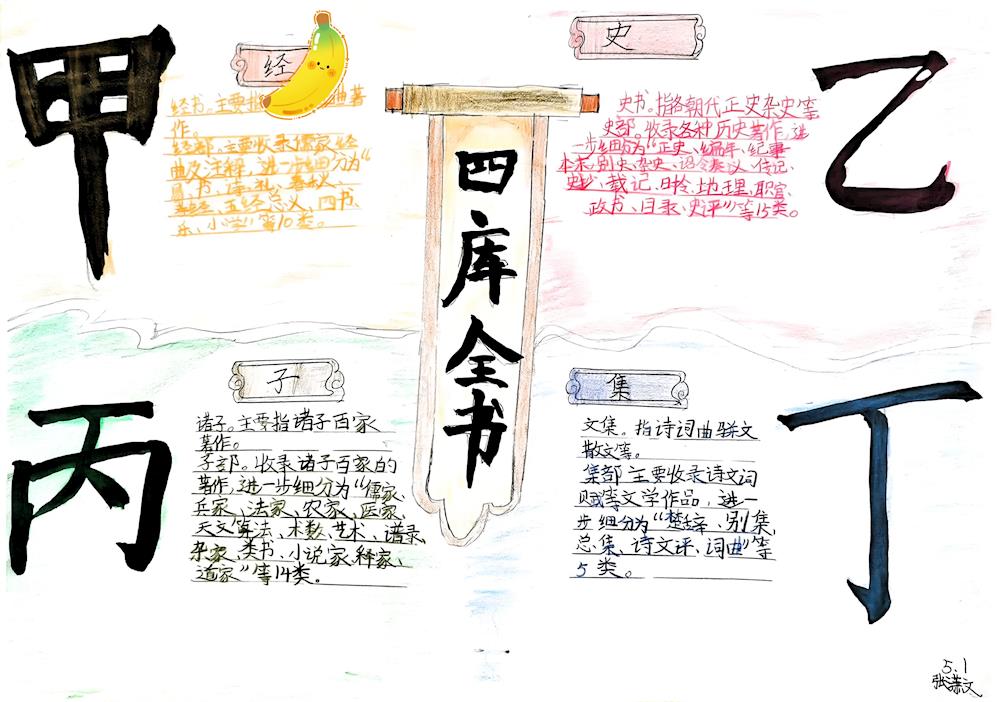 四库全书
甲
经
经书。主要指 曲著
作。
经部。主要收录儒家经
典及注释，进一步细分为“
书、诗、礼、春秋、
孝经、五经总义、四书、
乐、小学”等10类。
史
乙
史书。指各朝代正史杂史等
史部。收录各种历史著作，进
一步细分为“正史、编年、纪事
本末、别史、杂史、诏令奏议、传记、
史抄、载记、时令、地理、职官、
政书、目录、史评”等15类。
丙
子
诸子。主要指诸子百家
著作。
子部。收录诸子百家的
著作，进一步细分为“儒家、
兵家、法家、农家、医家、
天文算法、术数、艺术、谱录、
杂家、类书、小说家、释家、
道家”等14类。
集
丁
文集。指诗词曲骈文
散文等。
集部 主要收录诗文词
赋等文学作品，进一
步细分为“楚辞、别集、
总集、诗文评、词曲”等
5类。
5.1
张 文